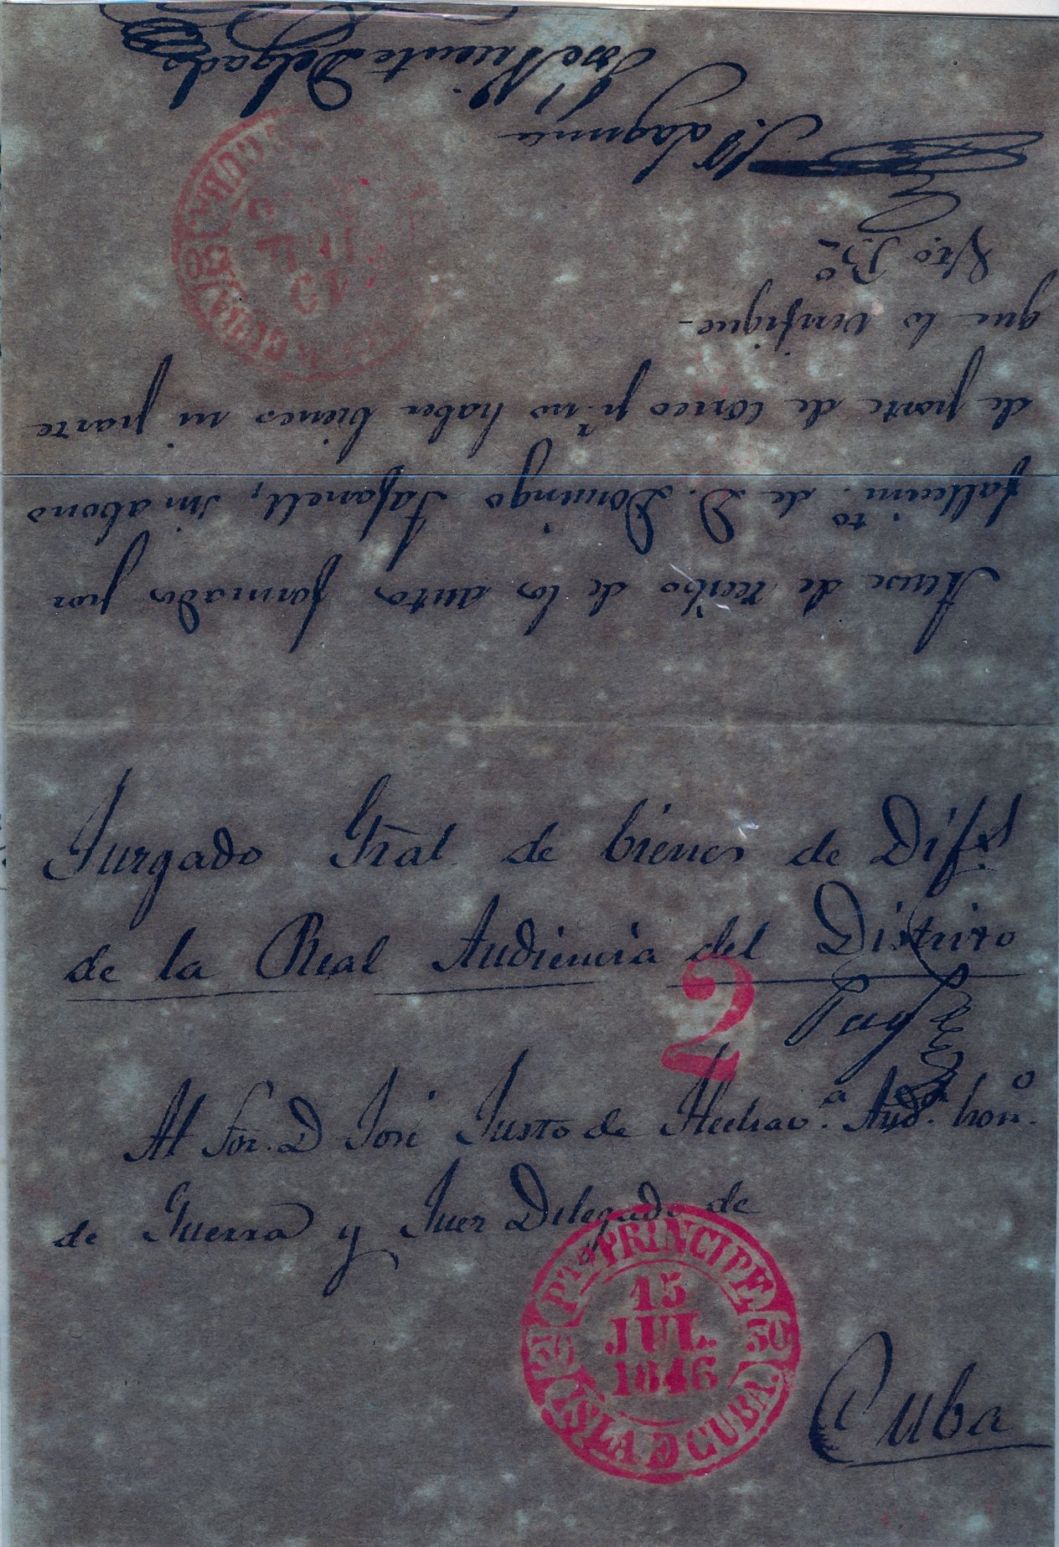 Juzgado Gral de bienes de Dif.s
de la Real Audiencia del Distrito
2
Al Sor. D José Justo de Hechav.a Aud.r hon.o
de Guerra y Juez Delegado de
PTO PRINCIPE
30 30
15
JUL.
1846
ISLA D CUBA.
Cuba
Acuse de recibo de los autos formados por
fallecim.to de D. Domingo Tafanell, sin abono
de porte de correo p.r no haber bienes ni parte
que lo verifique
Vto. B.o
José Vicente Delgado
CUBA
15
JUL